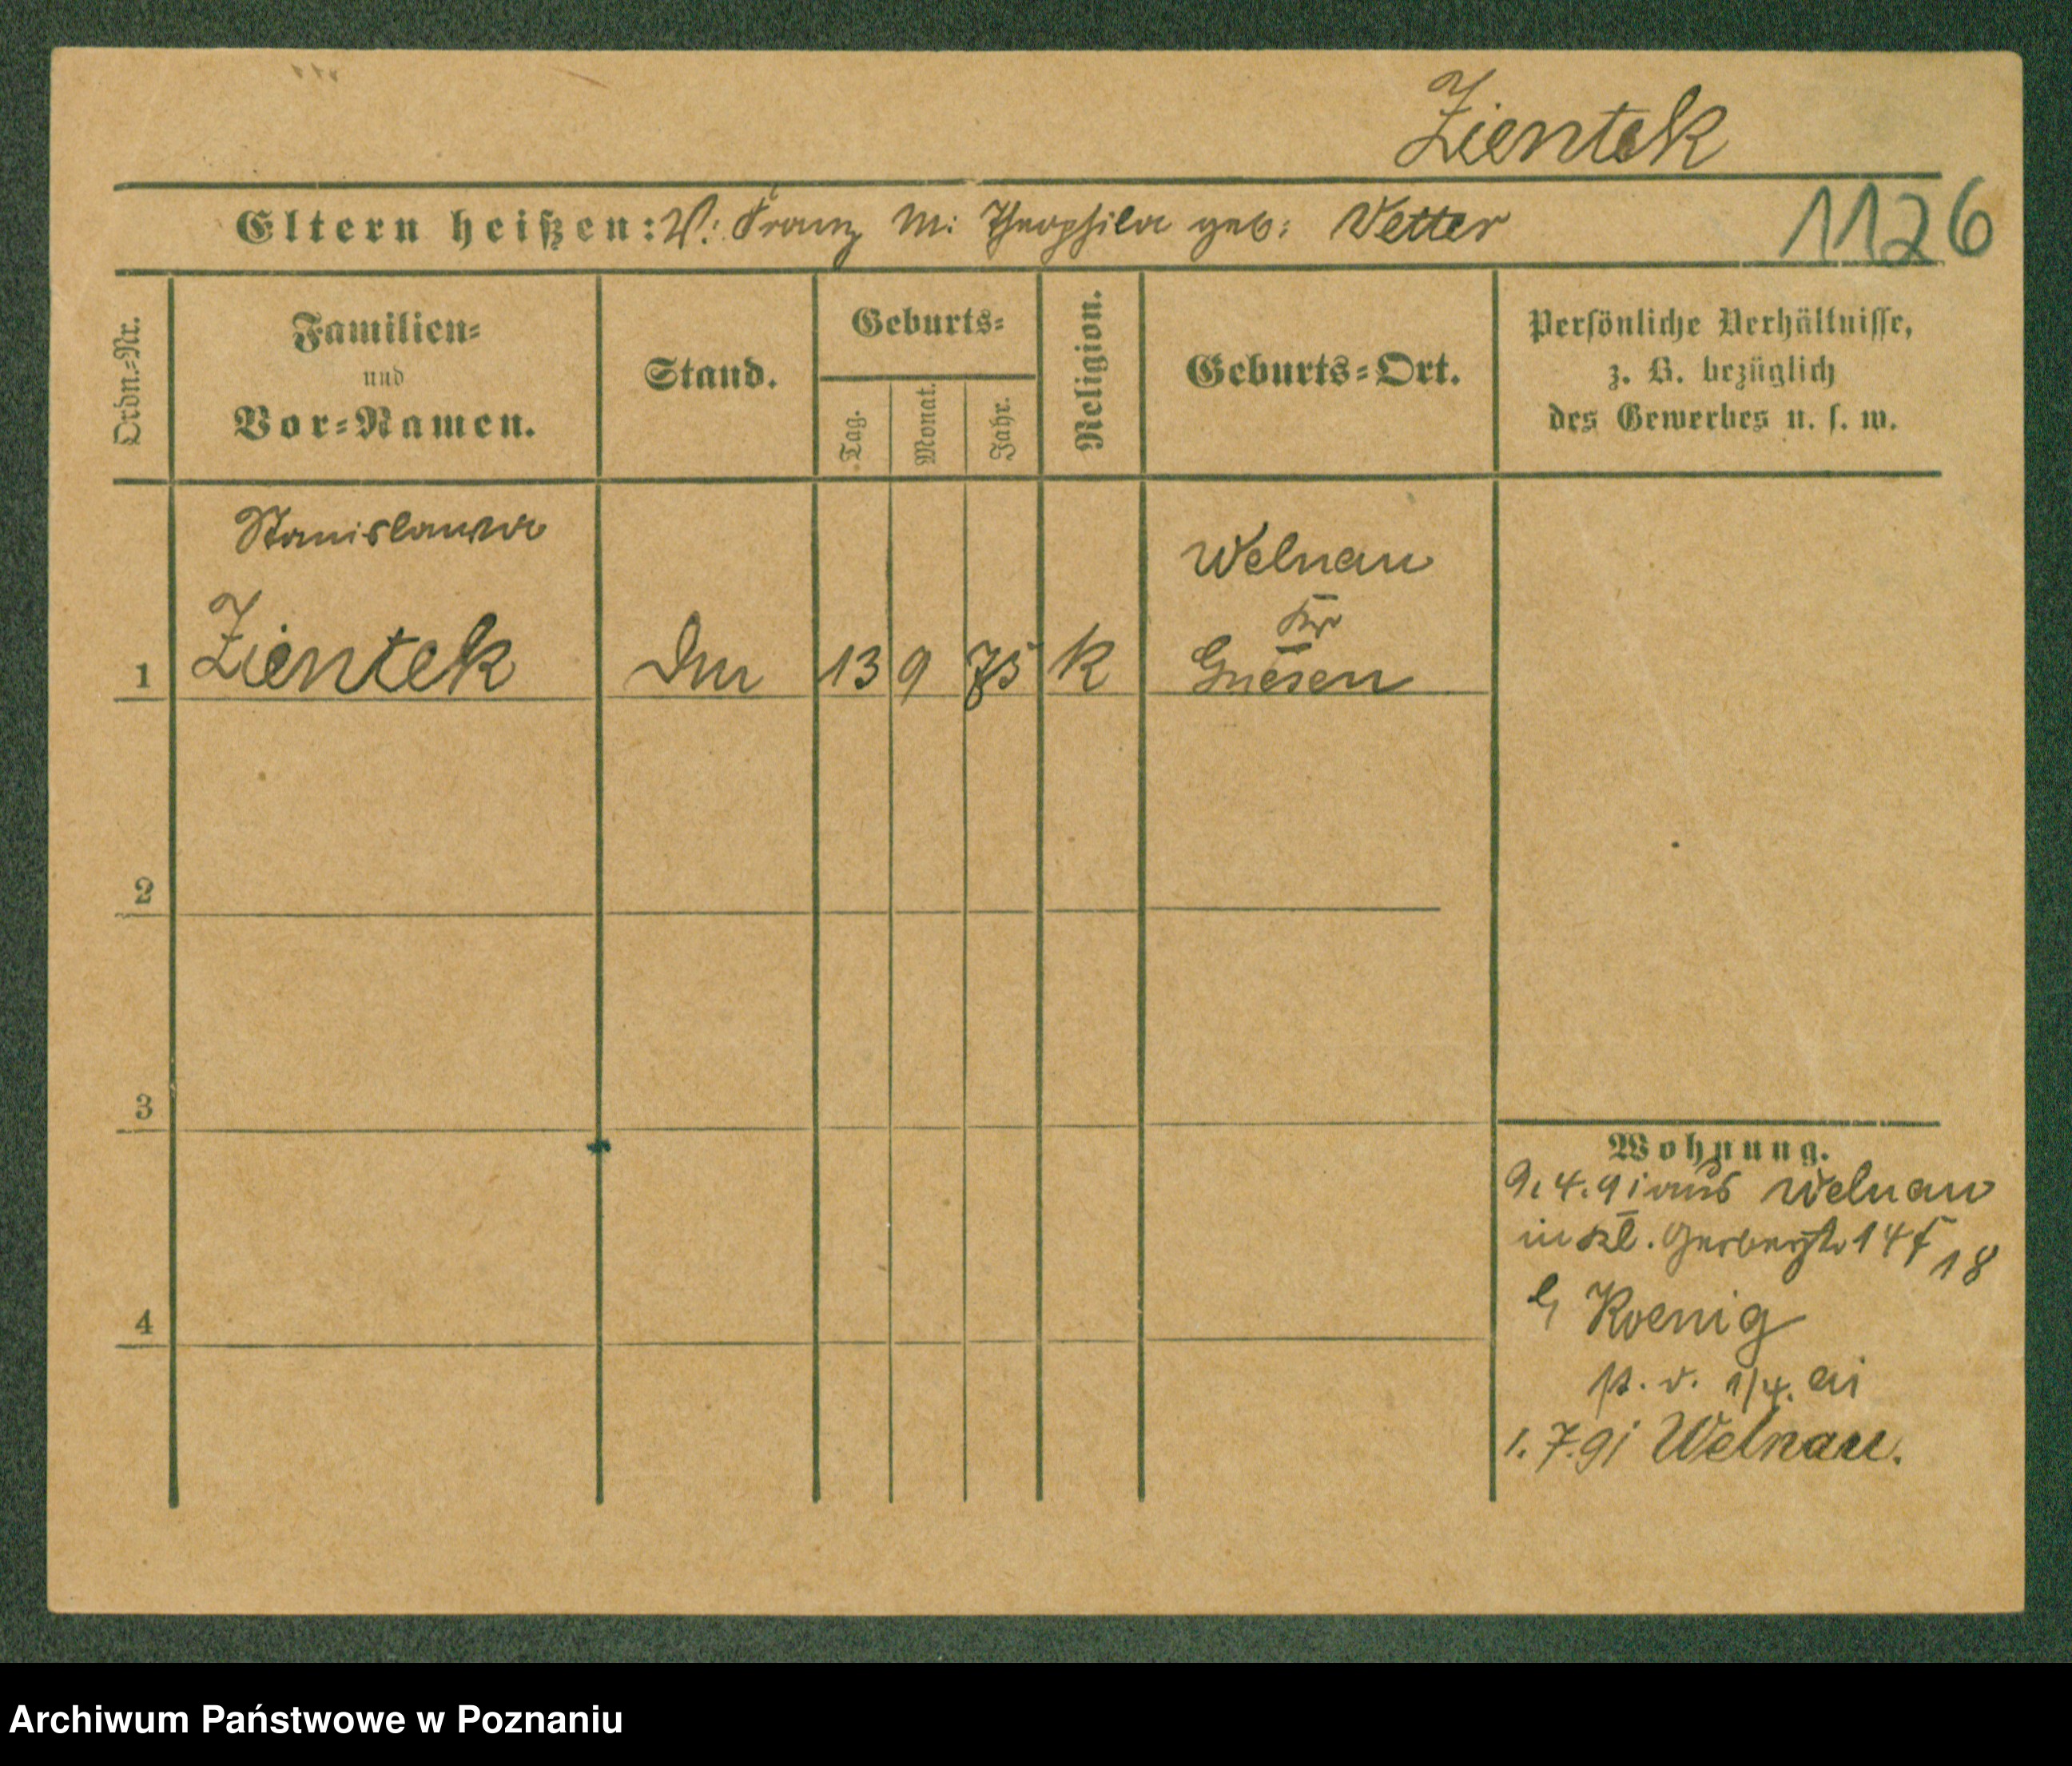 Zientek
Eltern heißen: V: Franz M: Theophila geb: Vetter
1126
Ordn.-Nr.
Familien-
und
Vor-Namen.
Stand.
Geburts-
Tag.
Monat.
Jahr.
Religion.
Geburts-Ort.
Persönliche Verhältnisse,
z. B. bezüglich
des Gewerbes u. s. w.
Stanislawa
Zientek
1
13 9 75 K
Welnau
Kr
Gnesen
2
3
4
Wohnung.
9.4.91 aus Welnau
in Kl. Gerberstr 14
18
Koenig
v. 1/4.
1.7.91 Welnau.
Archiwum Państwowe w Poznaniu